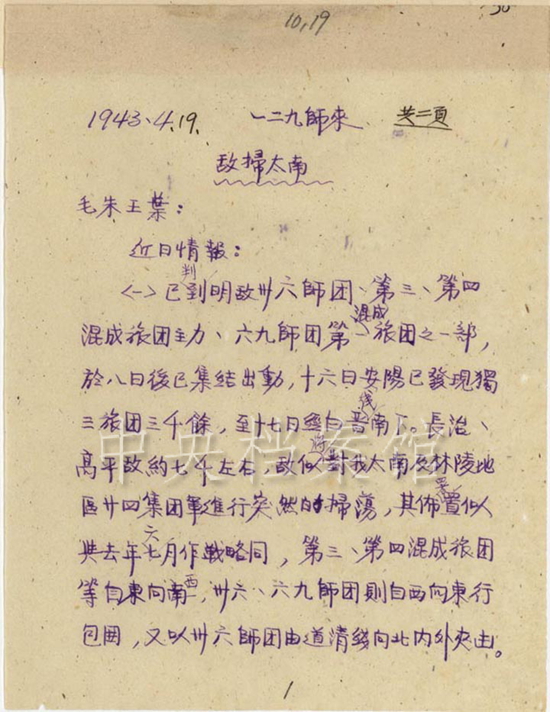 10,19
1943.4.19. 一二九師來 共二頁
敌掃太南
毛朱王葉：
近日情報：
㈠已判明敌卅六師团、第三、第四
混成旅团主力、六九師团第一混成旅团之一部，
於八日後已集结出動，十六日安陽已發現獨
三旅团三千餘，至十七日經白晋线南下。長治、
高平敌約七千左右，敌似将對我太南及林陵地
區廿四集团軍進行突然的掃蕩，其佈置似
與去年六七月作戰略同，第三、第四混成旅团
等自東向南西，卅六、六九師团則自西向東行
包囲，又以卅六師团由道清綫向北内外夹击。
中央档案馆
1